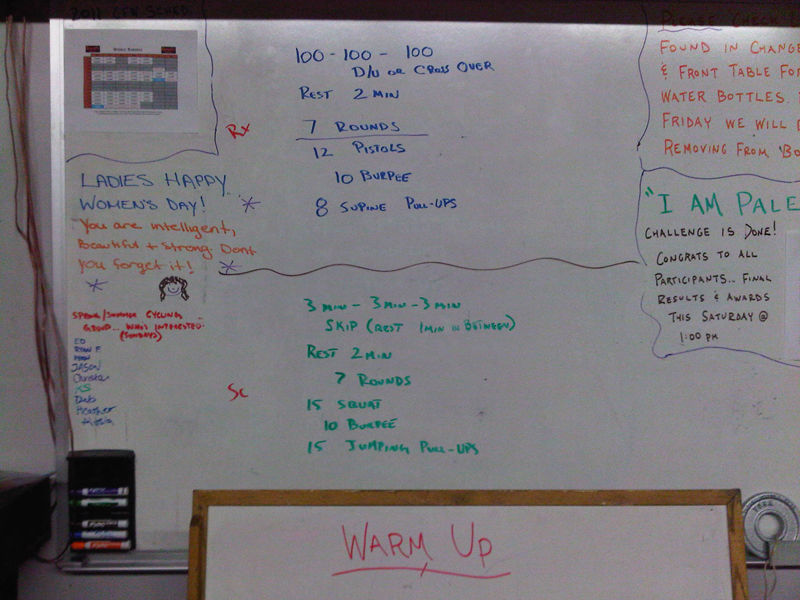 2011 CFK SCHED
LADIES HAPPY
WOMEN'S DAY!
You are intelligent,
Beautiful + strong. Dont
you forget it!
SPRING/SUMMER CYCLING
GROUP... WHO'S INTERESTED?
(SUNDAYS)
ED
RYAN F.
JASON
Christa
KS
Deb
Heather
Rx
100 - 100 - 100
D/U OR CROSS OVER
REST 2 MIN
7 ROUNDS
12 PISTOLS
10 BURPEE
8 SUPINE PULL-UPS
Sc
3 MIN - 3 MIN - 3 MIN
SKIP (REST 1 MIN IN BETWEEN)
REST 2 MIN
7 ROUNDS
15 SQUAT
10 BURPEE
15 JUMPING PULL-UPS
PLEASE CHECK
FOUND IN CHANGE
& FRONT TABLE FOR
WATER BOTTLES.
FRIDAY WE WILL
REMOVING FROM 'BO
"I AM PALE
CHALLENGE IS DONE!
CONGRATS TO ALL
PARTICIPANTS.. FINAL
RESULTS & AWARDS
THIS SATURDAY @
1:00 PM
WARM UP